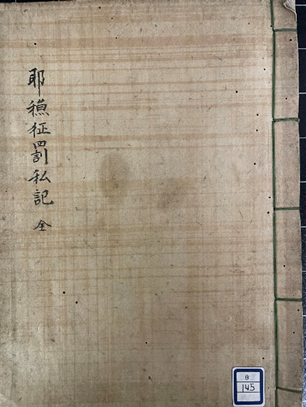 耶蘓征罰私記 全
B
145